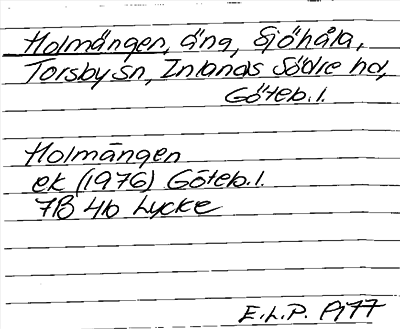 Holmängen, äng, Sjöhåla,
Torsby sn, Inlands Södre hd,
Göteb.l.
Holmängen
ek (1976) Göteb.l.
7B 4b Lycke
E.L.P. Pj77